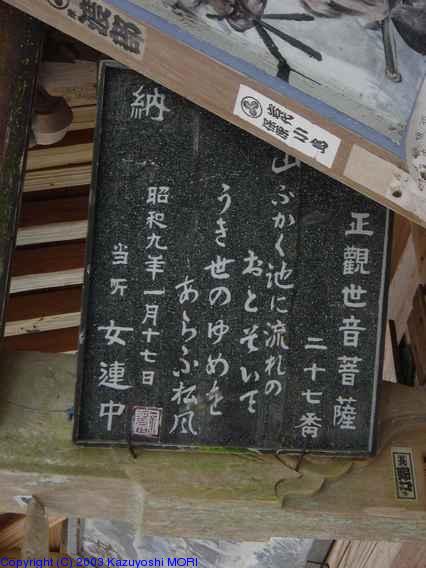 正觀世音菩薩
二十七番
山ぶかく池に流れの
おとそいて
うき世のゆめを
あらふ松風
納
昭和九年一月十七日
當所
女連中
Copyright (C) 2003 Kazuyoshi MORI